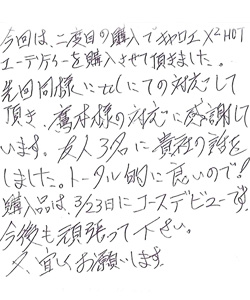 今回は、二度目の購入でキャロエ X2HOT
ユーティリティーを購入させて頂きました。
先回同様にtelにての対応して
頂き、萬本様の対応に感謝して
います。友人3名に貴社の話を
しました。トータル的に良いので!
購入品は、3/23日にコースデビューです。
今後も頑張って下さい。
又、宜しくお願いします。